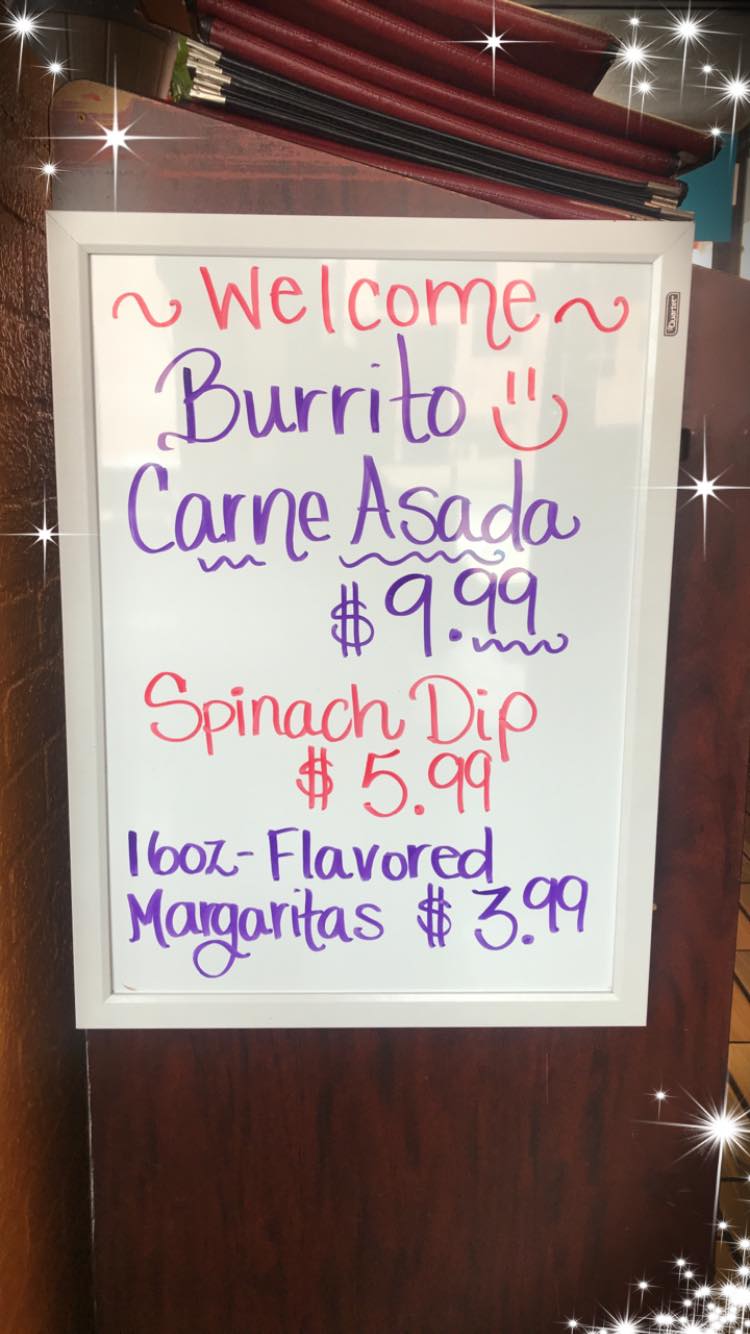 ~ Welcome ~
Burrito
Carne Asada
$ 9.99
Spinach Dip
$ 5.99
16oz - Flavored
Margaritas $ 3.99
Quartet